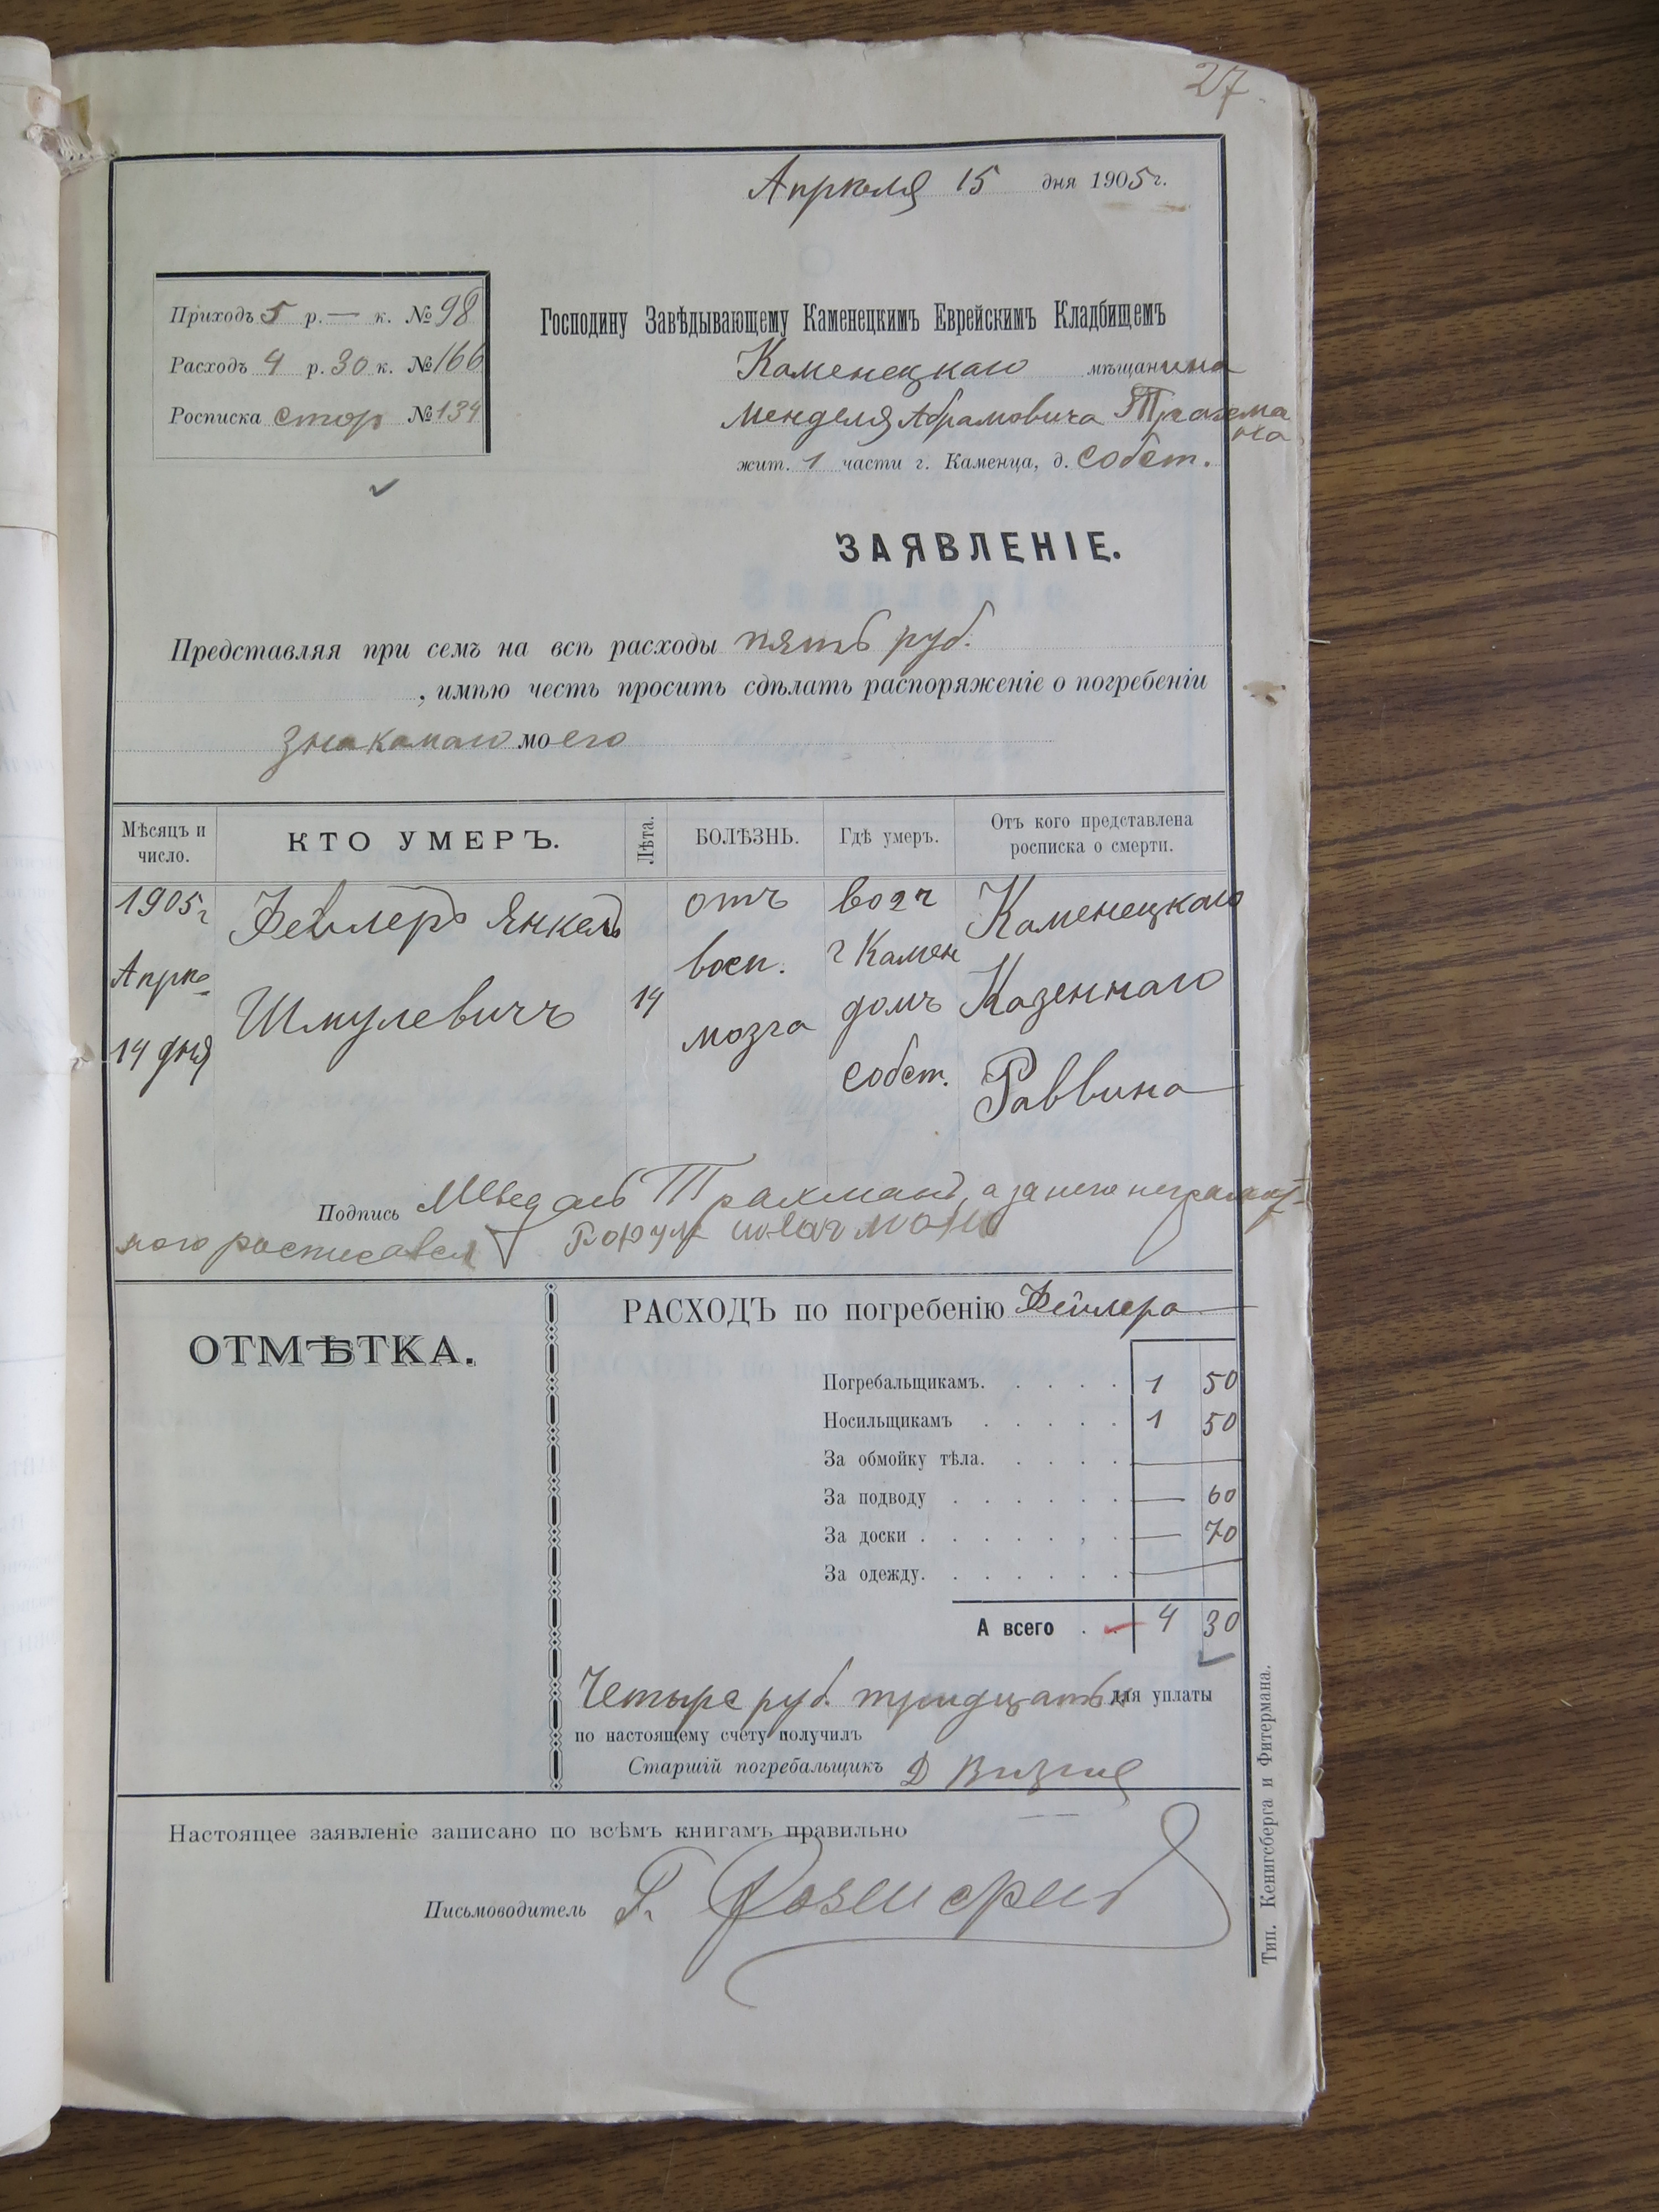 27.
Апрѣля 15 дня 1905 г.
Приходъ 5 р. — к. № 98
Расходъ 4 р. 30 к. № 166
Росписка стор № 134
Господину Завѣдывающему Каменецкимъ Еврейскимъ Кладбищемъ
Каменецкаго мѣщанина
Менделя Абрамовича
жит. 1 части г. Каменца, д. собст.
ЗАЯВЛЕНІЕ.
Представляя при семъ на всѣ расходы пять руб.
, имѣю честь просить сдѣлать распоряженіе о погребеніи
знакамаго моего
Мѣсяцъ и число.
КТО УМЕРЪ.
Лѣта.
БОЛѢЗНЬ.
Гдѣ умеръ.
Отъ кого представлена
росписка о смерти.
1905 г
Апрѣ
14 дня
Фейлеръ Янкель
Шмулевичъ
14
отъ
восп.
мозга
во 2 ч
г Камен
домъ
собст.
Каменецкаго
Казеннаго
Раввина
Подпись Трахманъ, а за него неграмот-
ного росписался
ОТМѢТКА.
РАСХОДЪ по погребенію Фейлера
Погребальщикамъ. 1 50
Носильщикамъ 1 50
За обмойку тѣла. —
За подводу — 60
За доски — 70
За одежду. —
А всего 4 30
Четыре руб. тридцать к для уплаты
по настоящему счету получилъ
Старшій погребальщикъ Д
Настоящее заявленіе записано по всѣмъ книгамъ правильно
Письмоводитель Г.
Тип. Кенигсберга и Фитермана.